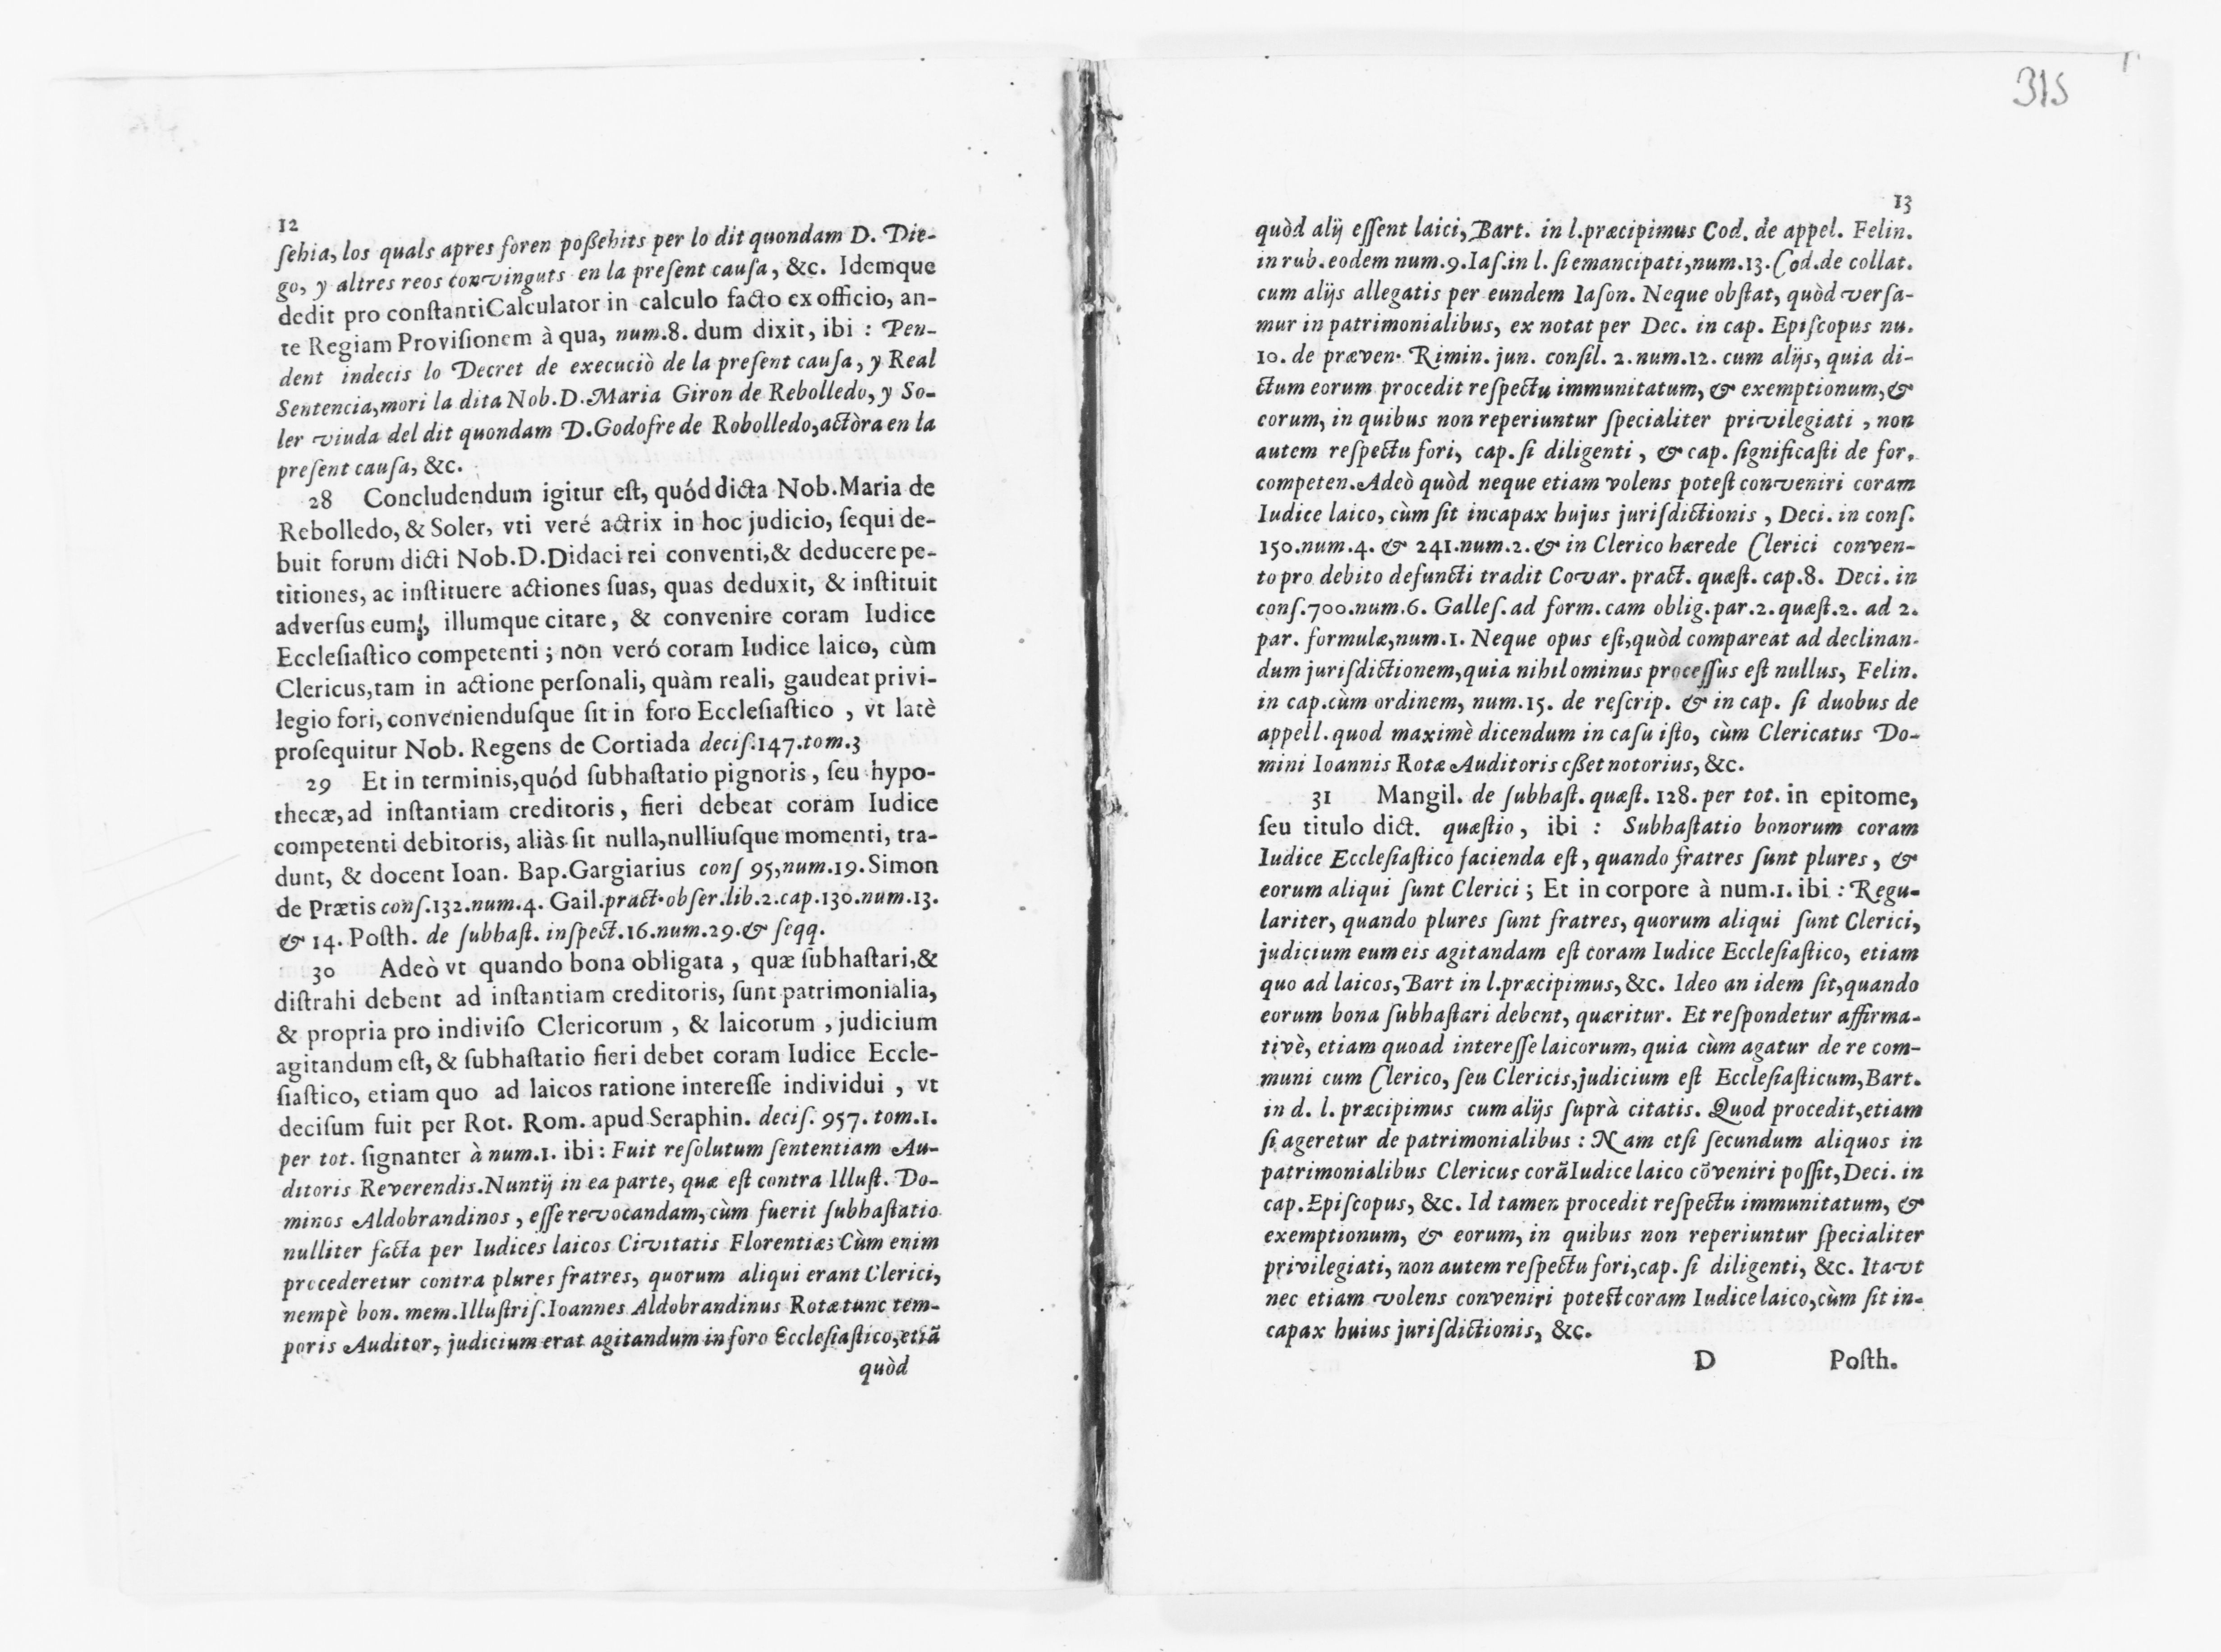 12
ſehia, los quals apres foren poßehits per lo dit quondam D. Die-
go, y altres reos convinguts en la preſent cauſa, &c. Idemque
dedit pro conſtanti Calculator in calculo facto ex officio, an-
te Regiam Proviſionem à qua, num.8. dum dixit, ibi : Pen-
dent indecis lo Decret de execuciò de la preſent cauſa, y Real
Sentencia, mori la dita Nob. D. Maria Giron de Rebolledo, y So-
ler viuda del dit quondam D. Godofre de Robolledo, actòra en la
preſent cauſa, &c.
28 Concludendum igitur eſt, quód dicta Nob. Maria de
Rebolledo, & Soler, vti veré actrix in hoc judicio, ſequi de-
buit forum dicti Nob. D. Didaci rei conventi, & deducere pe-
titiones, ac inſtituere actiones ſuas, quas deduxit, & inſtituit
adverſus eum, illumque citare, & convenire coram Iudice
Eccleſiaſtico competenti ; non veró coram Iudice laico, cùm
Clericus, tam in actione perſonali, quàm reali, gaudeat privi-
legio fori, convenienduſque ſit in foro Eccleſiaſtico , vt latè
proſequitur Nob. Regens de Cortiada deciſ.147.tom.3
29 Et in terminis, quód ſubhaſtatio pignoris , ſeu hypo-
thecæ, ad inſtantiam creditoris , fieri debeat coram Iudice
competenti debitoris, aliàs ſit nulla, nulliuſque momenti, tra-
dunt, & docent Ioan. Bap. Gargiarius conſ 95, num.19. Simon
de Prætis conſ.132.num.4. Gail. pract. obſer. lib.2.cap.130.num.13.
& 14. Poſth. de ſubhaſt. inſpect.16.num.29.& ſeqq.
30 Adeò vt quando bona obligata , quæ ſubhaſtari, &
diſtrahi debent ad inſtantiam creditoris, ſunt patrimonialia,
& propria pro indiviſo Clericorum , & laicorum , judicium
agitandum eſt, & ſubhaſtatio fieri debet coram Iudice Eccle-
ſiaſtico, etiam quo ad laicos ratione intereſſe individui , vt
deciſum fuit per Rot. Rom. apud Seraphin. deciſ. 957. tom.1.
per tot. ſignanter à num.1. ibi : Fuit reſolutum ſententiam Au-
ditoris Reverendis. Nuntij in ea parte, quæ eſt contra Illuſt. Do-
minos Aldobrandinos , eſſe revocandam, cùm fuerit ſubhaſtatio
nulliter facta per Iudices laicos Civitatis Florentiæ; Cùm enim
procederetur contra plures fratres, quorum aliqui erant Clerici,
nempè bon. mem. Illuſtriſ. Ioannes Aldobrandinus Rotæ tunc tem-
poris Auditor, judicium erat agitandum in foro Eccleſiaſtico, etiã
quòd
315
13
quòd alij eſſent laici, Bart. in l. præcipimus Cod. de appel. Felin.
in rub. eodem num.9. Iaſ. in l. ſi emancipati, num.13. Cod. de collat.
cum alijs allegatis per eundem Iaſon. Neque obſtat, quòd verſa-
mur in patrimonialibus, ex notat per Dec. in cap. Epiſcopus nu.
10. de præven. Rimin. jun. conſil. 2. num.12. cum alijs, quia di-
ctum eorum procedit reſpectu immunitatum, & exemptionum, &
eorum, in quibus non reperiuntur ſpecialiter privilegiati , non
autem reſpectu fori, cap. ſi diligenti , & cap. ſignificaſti de for.
competen. Adeò quòd neque etiam volens poteſt conveniri coram
Iudice laico, cùm ſit incapax hujus juriſdictionis , Deci. in conſ.
150.num.4. & 241.num.2. & in Clerico hærede Clerici conven-
to pro debito defuncti tradit Covar. pract. quæſt. cap.8. Deci. in
conſ.700.num.6. Galleſ. ad form. cam oblig. par.2. quæſt.2. ad 2.
par. formulæ, num.1. Neque opus eſt, quòd compareat ad declinan-
dum juriſdictionem, quia nihilominus proceſſus eſt nullus, Felin.
in cap. cùm ordinem, num.15. de reſcrip. & in cap. ſi duobus de
appell. quod maximè dicendum in caſu iſto, cùm Clericatus Do-
mini Ioannis Rotæ Auditoris eßet notorius, &c.
31 Mangil. de ſubhaſt. quæſt. 128. per tot. in epitome,
ſeu titulo dict. quæſtio, ibi : Subhaſtatio bonorum coram
Iudice Eccleſiaſtico facienda eſt, quando fratres ſunt plures , &
eorum aliqui ſunt Clerici ; Et in corpore à num.1. ibi : Regu-
lariter, quando plures ſunt fratres, quorum aliqui ſunt Clerici,
judicium eum eis agitandam eſt coram Iudice Eccleſiaſtico, etiam
quo ad laicos, Bart in l. præcipimus, &c. Ideo an idem ſit, quando
eorum bona ſubhaſtari debent, quæritur. Et reſpondetur affirma-
tivè, etiam quoad intereſſe laicorum, quia cùm agatur de re com-
muni cum Clerico, ſeu Clericis, judicium eſt Eccleſiaſticum, Bart.
in d. l. præcipimus cum alijs ſuprà citatis. Quod procedit, etiam
ſi ageretur de patrimonialibus : Nam etſi ſecundum aliquos in
patrimonialibus Clericus corã Iudice laico cõveniri poſſit, Deci. in
cap. Epiſcopus, &c. Id tamen procedit reſpectu immunitatum, &
exemptionum, & eorum, in quibus non reperiuntur ſpecialiter
privilegiati, non autem reſpectu fori, cap. ſi diligenti, &c. Ita vt
nec etiam volens conveniri poteſt coram Iudice laico, cùm ſit in-
capax huius juriſdictionis, &c.
D Poſth.